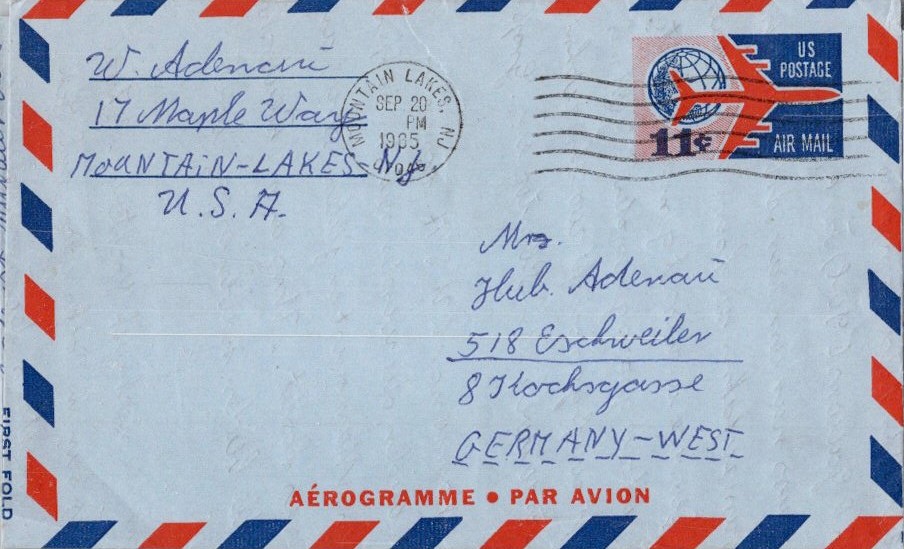 W. Adenaü
17 Maple Way
MOUNTAIN-LAKES N.J.
U.S.A.
MOUNTAIN LAKES, NJ
SEP 20
PM
1965
US
POSTAGE
11¢
AIR MAIL
Mrs.
Hub. Adenaü
518 Eschweiler
8 Kochsgasse
GERMANY-WEST
AÉROGRAMME • PAR AVION
FIRST FOLD